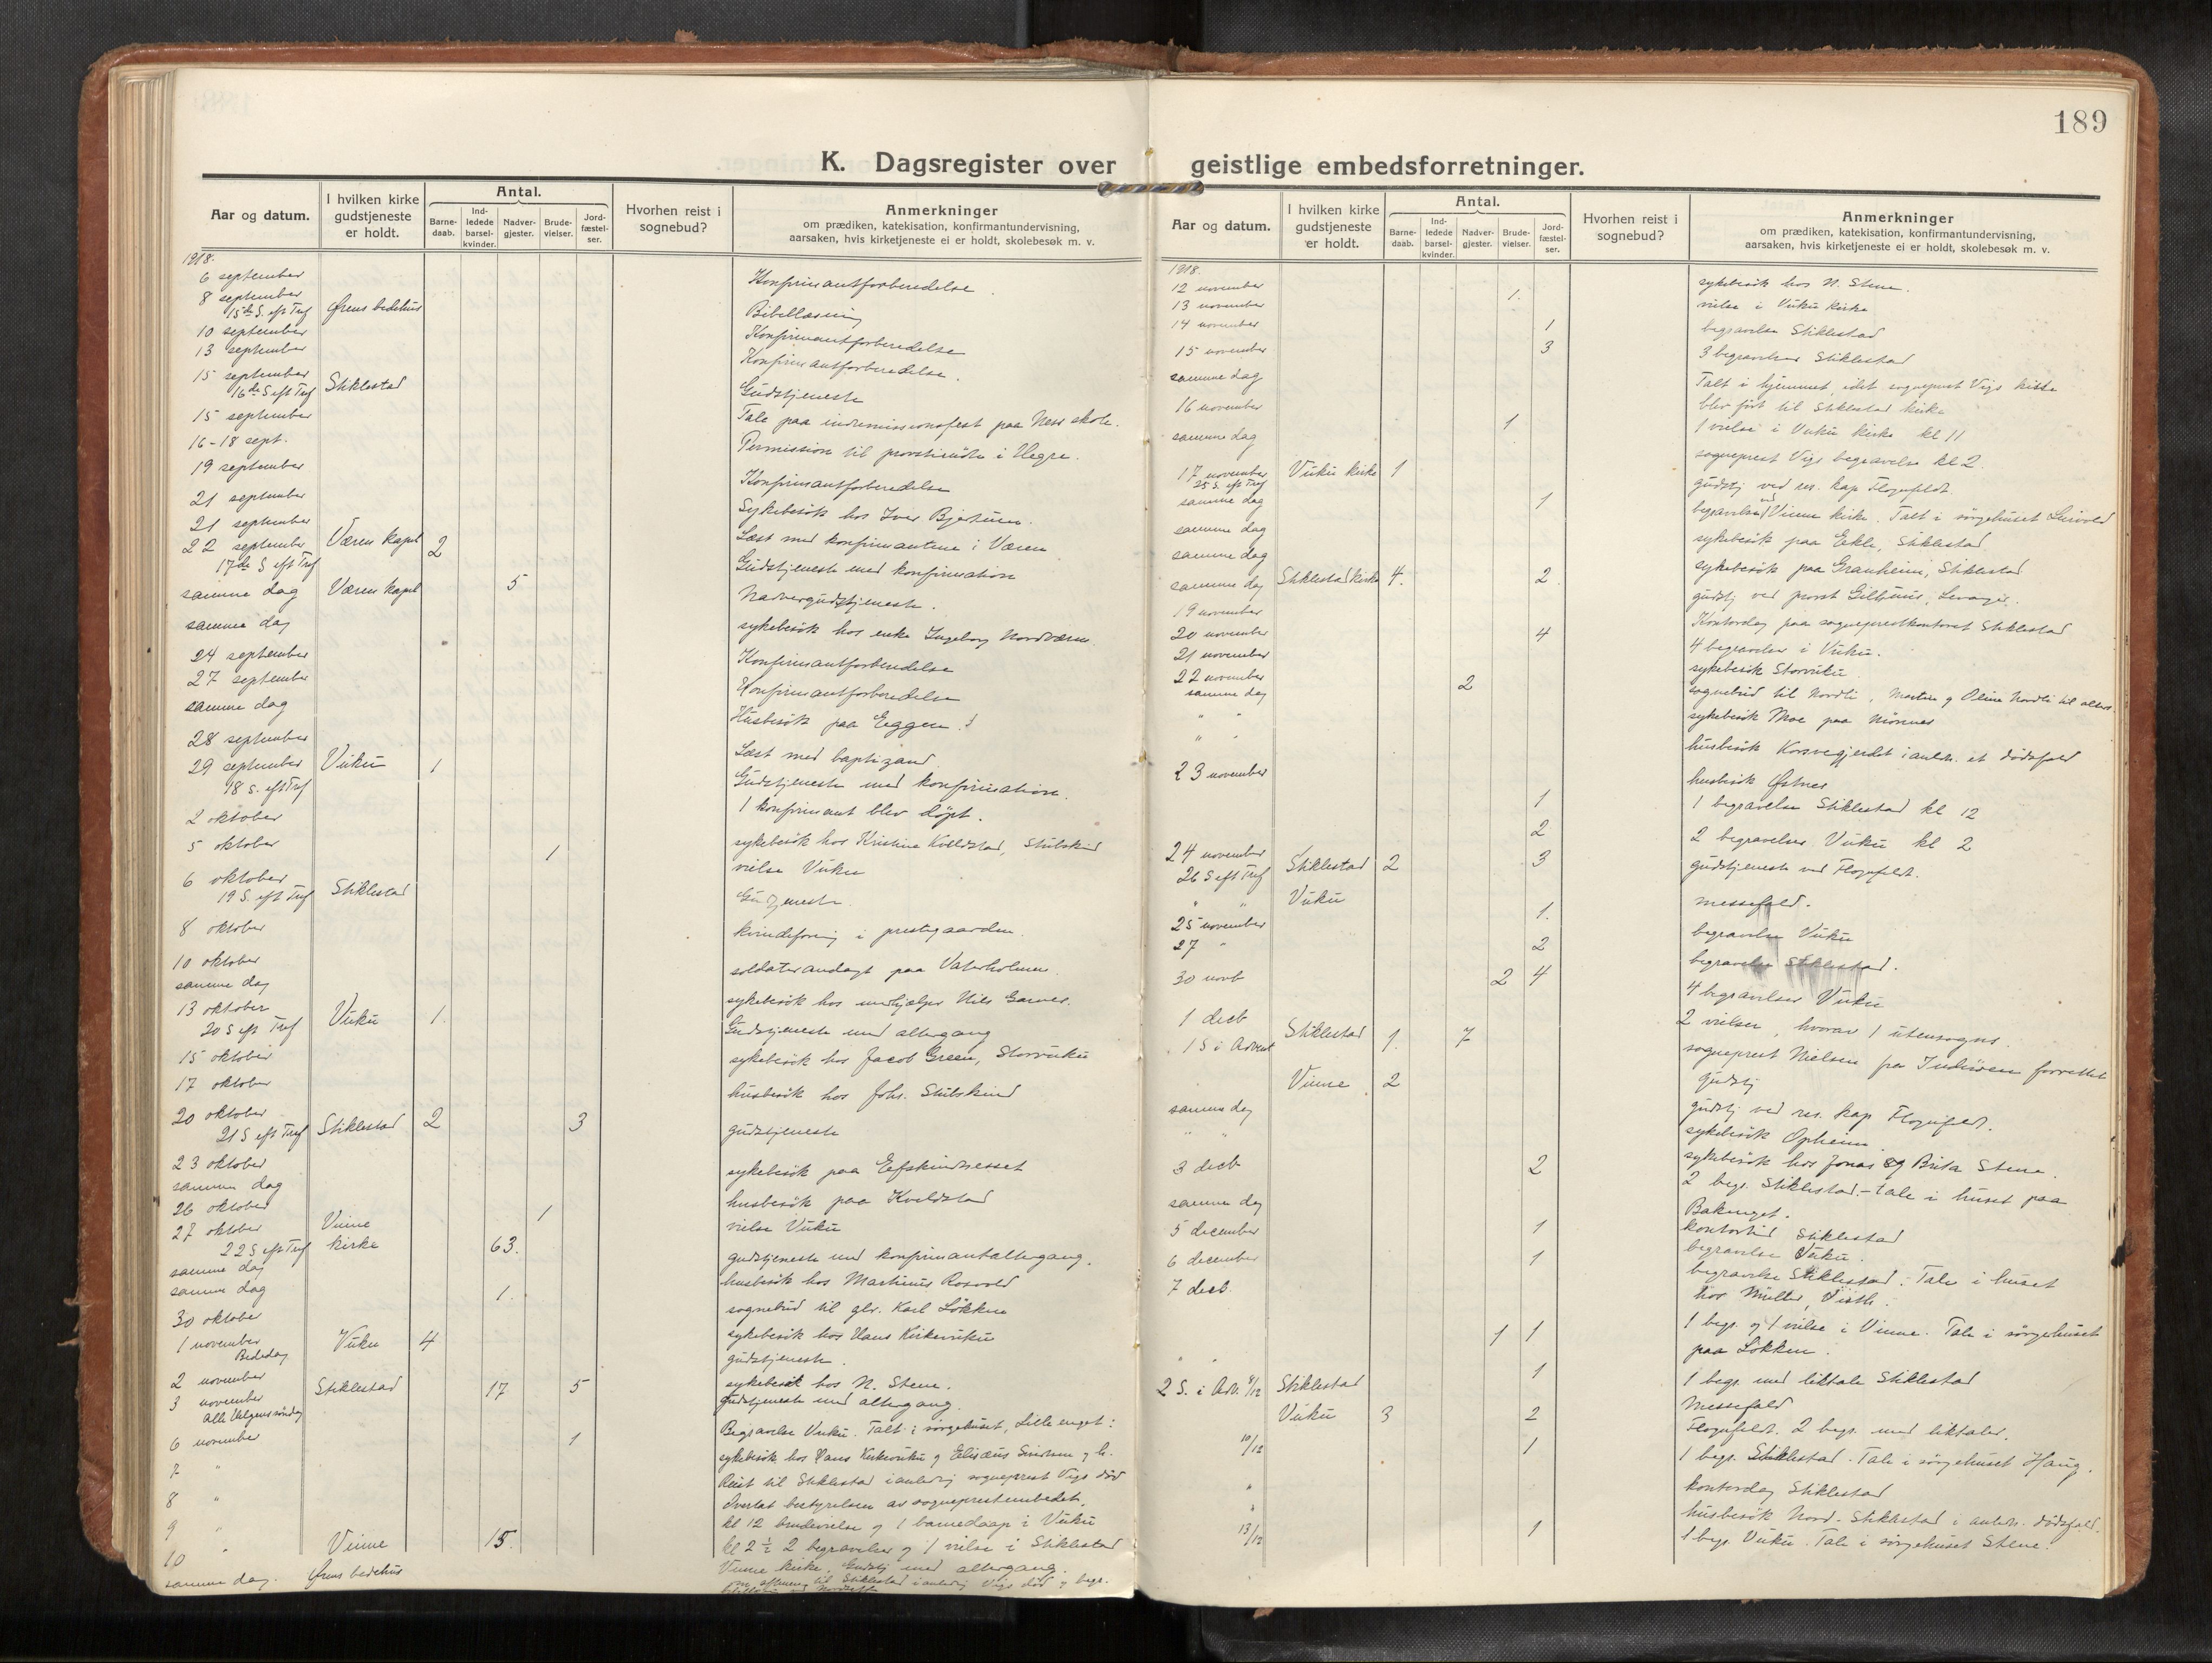 189
K. Dagsregister over geistlige embedsforretninger.
Aar og datum.
I hvilken kirke gudstjeneste er holdt.
Antal.
Barnedaab.
Indledede barselkvinder.
Nadvergjester.
Brudevielser.
Jordfæstelser.
Hvorhen reist i sognebud?
Anmerkninger
om prædiken, katekisation, konfirmantundervisning,
aarsaken, hvis kirketjeneste ei er holdt, skolebesøk m. v.
1918.
6 september Konfirmantforberedelse
8 september 15de S. eft Tref Ørens bedehus Bibellæsning
10 september Konfirmantforberedelse
13 september Konfirmantforberedelse.
15 september 16de S eft Tref Stiklestad Gudstjeneste
15 september Tale paa indremissionsfest paa Ness skole.
16-18 sept. Permission til provstimöte i Hegre.
19 september Konfirmantforberedelse
21 september Sykebesök hos Iver
21 september Læst med konfirmantene i Væren
22 september 17de S eft Tref Væren kapel 2 Gudstjeneste med konfirmation
samme dag Væren kapel 5 Nadvergudstjeneste.
samme dag sykebesök hos enke Ingeborg Nordværen
24 september Konfirmantforberedelse
27 september Konfirmantforberedelse
samme dag Husbesök paa Eggen
28 september Læst med baptizand
29 september 18 S. eft Tref Vuku 1 Gudstjeneste med konfirmation.
1 konfirmant blev döpt.
2 oktober sykebesök hos Kristine Kvelstad, Stubskin
5 oktober 1 vielse Vuku
6 oktober 19 S. eft Tref Stiklestad
8 oktober kvindeforening i prestegaarden.
10 oktober soldaterandagt paa
samme dag sykebesök hos Nils Garnes.
13 oktober 20 S eft Tref Vuku 1. Gudstjeneste med altergang
15 oktober sykebesök hos Jacob Green, Storvuku
17 oktober husbesök hos Johs. Stubskind
20 oktober 21 S eft Tref Stiklestad 2 3 gudstjeneste
23 oktober sykebesök paa
samme dag husbesök paa Kveldstad
26 oktober 1 vielse Vuku
27 oktober 22 S eft Tref Vinne kirke 63. gudstjeneste med konfirmantaltergang.
samme dag husbesök hos Martinus Rosvold
samme dag 1. sognebud til Karl Lökken
30 oktober sykebesök hos Hans Kirkevuku
1 november Bededag Vuku 4 gudstjeneste.
2 november sykebesök hos N. Stene.
3 november Alle Helgens söndag Stiklestad 17 5 gudstjeneste med altergang.
6 november 1 Begravelse Vuku. Talt i sörgehuset, Lille enget:
7 " sykebesök hos Hans Kirkevuku og
8 " Reist til Stiklestad i anledn. sogneprest Vigs död
Overtat bestyrelsen av sogneprestembedet.
9 " kl 12 brudevielse og 1 barnedaap i Vuku
kl 2 1/2 2 begravelser og 1 vielse i Stiklestad
10 " Vinne 15. Vinne kirke. Gudstj med altergang.
samme dag. Ørens bedehus til Stiklestad i anledn Vigs död
Aar og datum.
I hvilken kirke gudstjeneste er holdt.
Antal.
Barnedaab.
Indledede barselkvinder.
Nadvergjester.
Brudevielser.
Jordfæstelser.
Hvorhen reist i sognebud?
Anmerkninger
om prædiken, katekisation, konfirmantundervisning,
aarsaken, hvis kirketjeneste ei er holdt, skolebesøk m. v.
1918.
12 november sykebesök hos N. Stene.
13 november 1. vielse i Vuku kirke
14 november 1 begravelse Stiklestad
15 november 3 3 begravelser Stiklestad
samme dag Talt i hjemmet, idet sogneprest Vigs kiste
blev fört til Stiklestad kirke
16 november 1 1 vielse i Vuku kirke kl 11
samme dag sogneprest Vigs begravelse kl 2.
17 november 25 S. eft Tref Vuku kirke 1 gudstj ved res. kap Flognfeldt.
samme dag 1 begravelse ved Vinne kirke. Talt i sörgehuset
samme dag sykebesök paa Ekle, Stiklestad
samme dag sykebesök paa Granheim, Stiklestad
samme dag Stiklestad kirke 4. 2. gudstj ved provst Gilhuus, Levanger.
19 november Kontordag paa sogneprestkontoret Stiklestad
20 november 4 4 begravelser i Vuku.
21 november sykebesök Storvuku
22 november 2 sognebud til Nordli, Martin og Oline Nordli til alters
samme dag sykebesök Moe paa
" " husbesök Korsvegjerdet i anledn. et dödsfald
" " husbesök Østnes
23 november 1 1 begravelse Stiklestad kl 12
2 2 begravelser Vuku kl 2
24 november 26 S eft Tref Stiklestad 2 3 gudstjeneste ved Flognfeldt.
" " Vuku messefald.
25 november 1. begravelse Vuku
27 " 2 begravelse Stiklestad.
30 novb 2 4 4 begravelser Vuku
2 vielser, hvorav 1 utensogns.
1 decb 1 S i Advent Stiklestad 1. 7 sogneprest Nielsen fra Inderöen forrettet
gudstj
Vinne 2 gudstj ved res. kap Flognfeldt.
samme dag sykebesök Opheim
" " sykebesök hos Jonas og Brita Stene.
3 decb 2 2 begr. Stiklestad. - tale i huset paa
Bakenget.
samme dag kontortid Stiklestad
5 december 1 begravelse Vuku.
6 december 1 begravelse Stiklestad. Tale i huset
hos Müller,
7 decb. 1 1 1 begr. og 1 vielse i Vinne. Tale i sörgehuset
paa Lökken.
" " 1 1 begr. med liktale Stiklestad
2 S. i Adv. 8/12 Stiklestad Messefald
Vuku 3 2 Flognfeldt. 2 begr. med liktaler.
10/12 1 1 begr. Stiklestad. Tale i sörgehuset Haug.
" kontordag Stiklestad
" husbesök Nord-Stiklestad i anledn. dödsfald.
13/12 1 1 begr. Vuku. Tale i sörgehuset Stene.